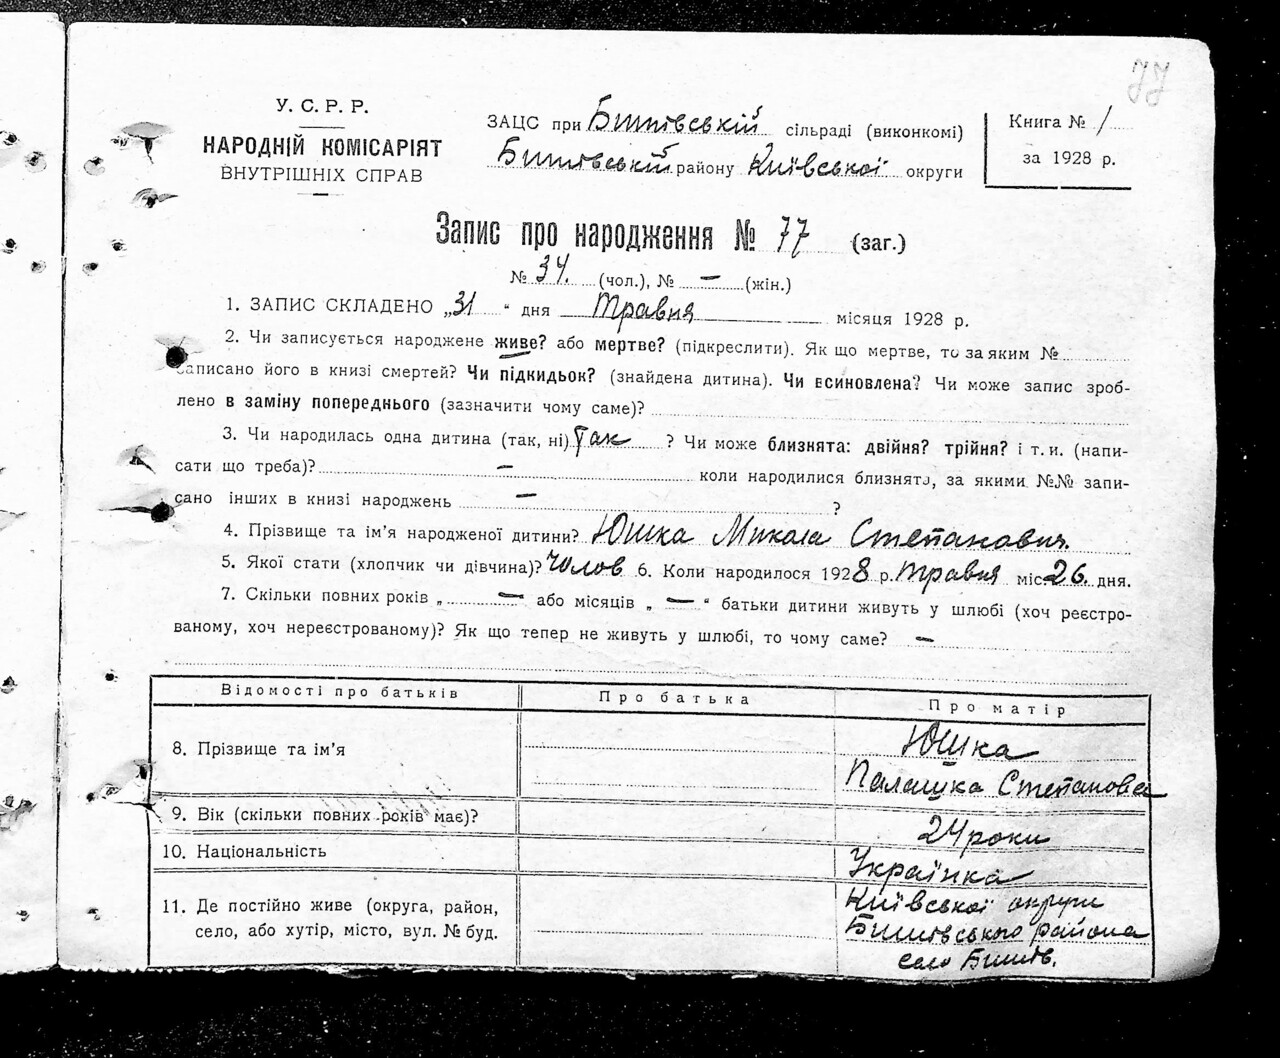 77
У. С. Р. Р.
НАРОДНІЙ КОМІСАРІЯТ
ВНУТРІШНІХ СПРАВ
ЗАЦС при Бишівській сільраді (виконкомі)
Бишівській району Київської округи
Книга № 1
за 1928 р.
Запис про народження № 77 (заг.)
№ 34. (чол.), № — (жін.)
1. ЗАПИС СКЛАДЕНО „31 “ дня Травня місяця 1928 р.
2. Чи записується народжене живе? або мертве? (підкреслити). Як що мертве, то за яким №
записано його в книзі смертей? Чи підкидьок? (знайдена дитина). Чи всиновлена? Чи може запис зроб-
лено в заміну попереднього (зазначити чому саме)?
3. Чи народилась одна дитина (так, ні) Так ? Чи може близнята: двійня? трійня? і т. и. (напи-
сати що треба)? — коли народилися близнята, за якими №№ запи-
сано інших в книзі народжень — ?
4. Прізвище та ім'я народженої дитини? Юшка Микола Степанович.
5. Якої стати (хлопчик чи дівчина)? Чолов 6. Коли народилося 1928 р. травня міс 26. дня.
7. Скільки повних років „ — або місяців „ — “ батьки дитини живуть у шлюбі (хоч реєстро-
ваному, хоч нереєстрованому)? Як що тепер не живуть у шлюбі, то чому саме? —
Відомості про батьків Про батька Про матір
8. Прізвище та ім'я Юшка
Палашка Степанова
9. Вік (скільки повних років має)? 24 роки
10. Національність Українка
11. Де постійно живе (округа, район, Київської округи
село, або хутір, місто, вул. № буд. Бишівського района
село Бишів.